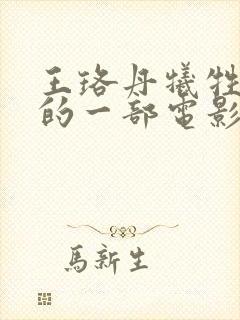 王珞丹犧牲
的一部電影
馬新生